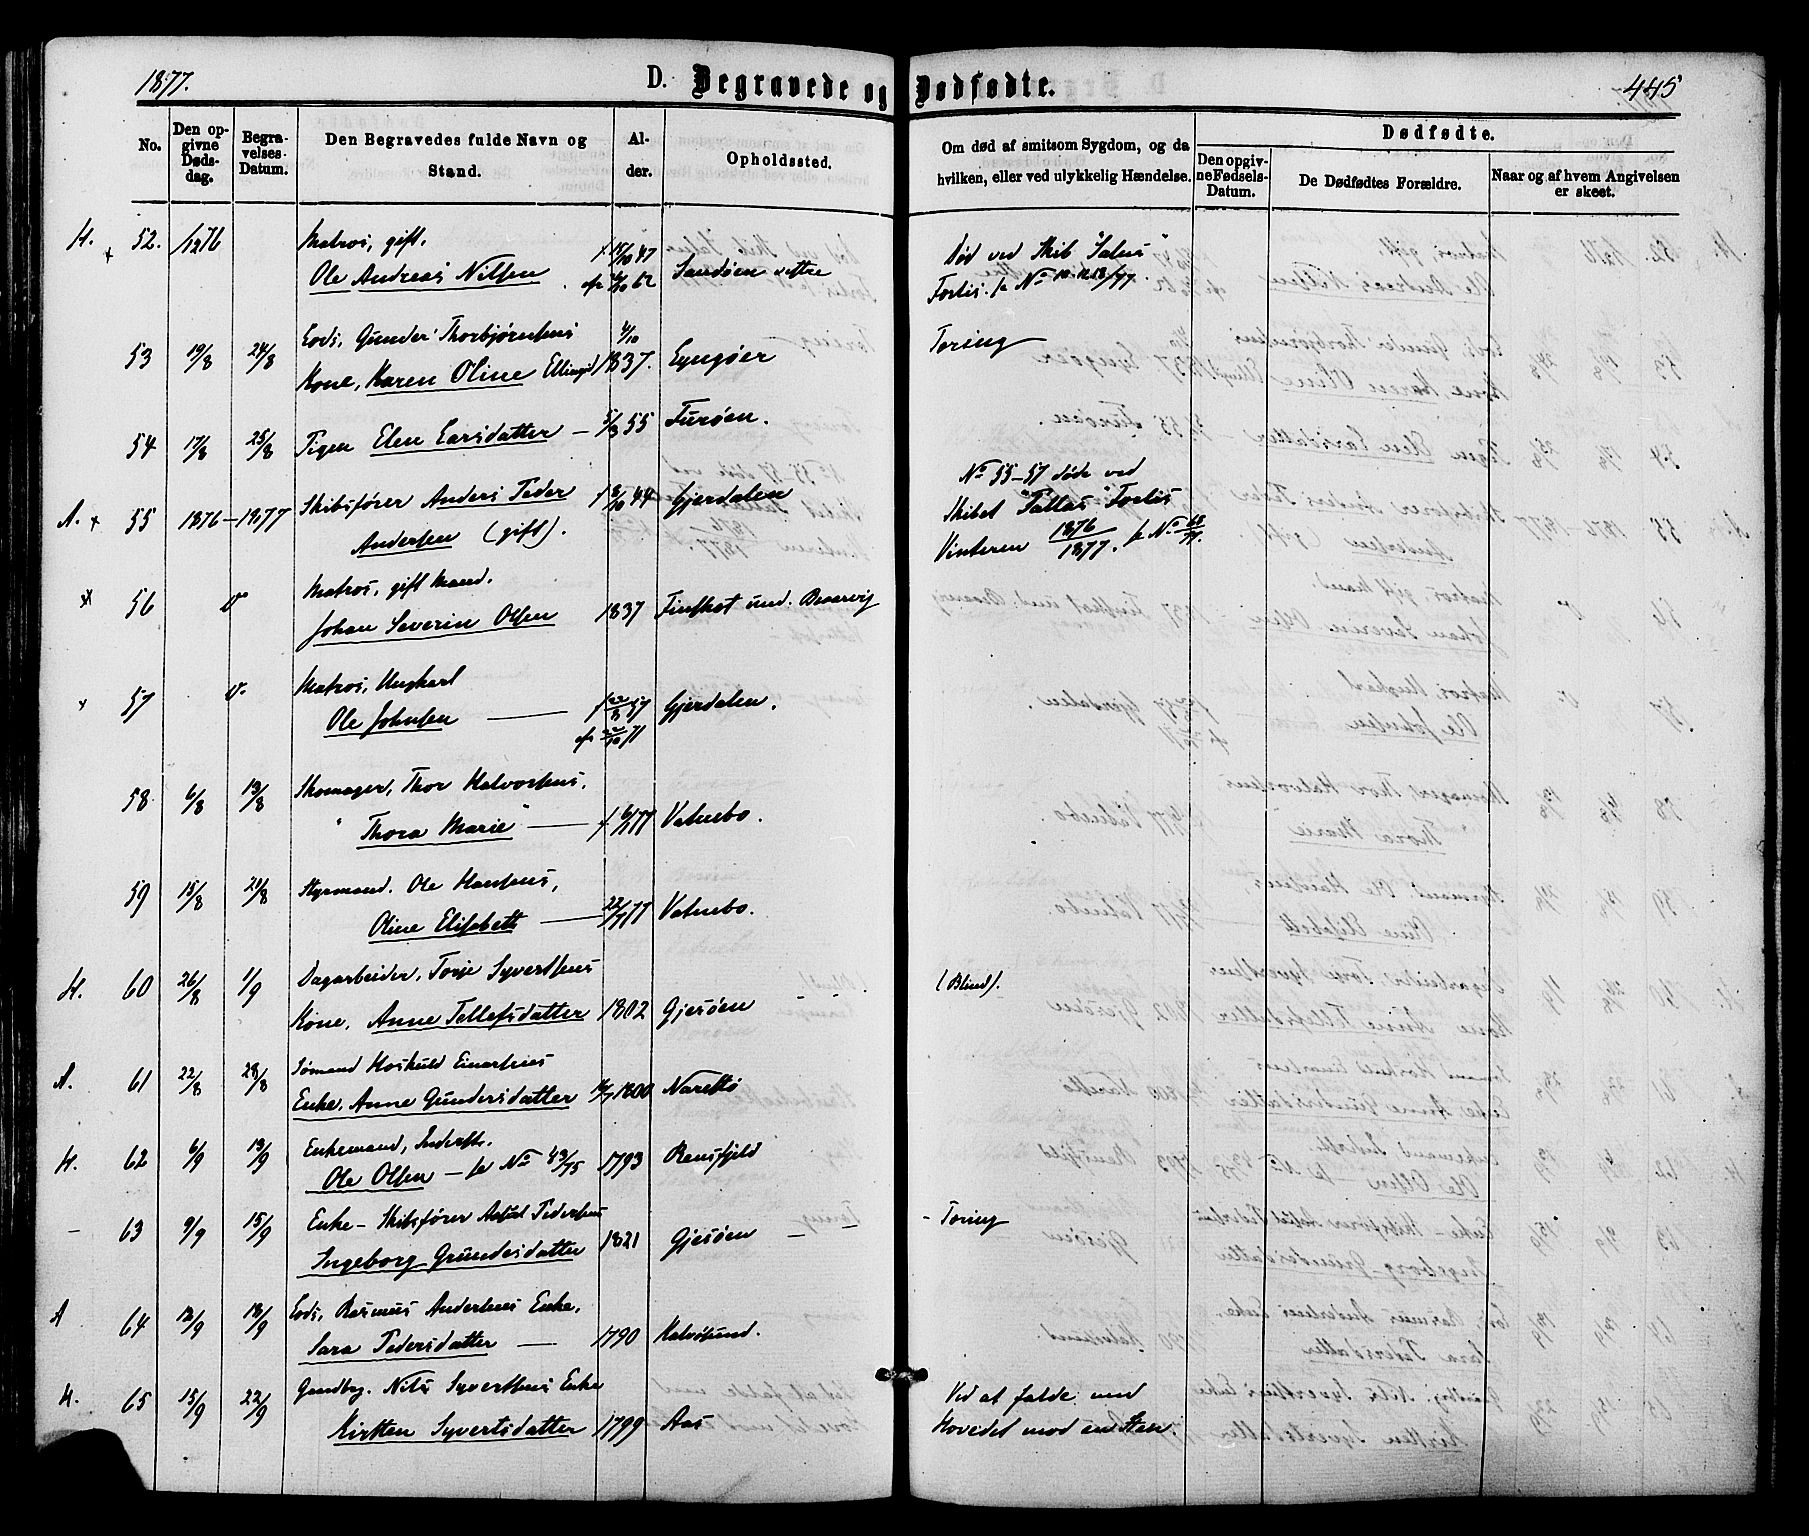 1877.
D. Begravede og Dødfødte.
445
No.
Den opgivne Dødsdag.
Begravelses-Datum.
Den Begravedes fulde Navn og Stand.
Alder.
Opholdssted.
Om død af smitsom Sygdom, og da hvilken, eller ved ulykkelig Hændelse.
Dødfødte.
Den opgivne Fødsels-Datum.
De Dødfødtes Forældre.
Naar og af hvem Angivelsen er skeet.
H. x 52. Matros, gift.
Ole Andreas Nilsen f 15/10 47 Sandøen vestre Død ved Skib "Salus"
Fortis.
53 19/8 24/8 Lods, Gunder Thorbjørnsens 4/10
Kone, Karen Oline 1837. Lyngøer Tæring
54 17/8 25/8 Pigen Elen Larsdatter — 5/8 55 Furøen.
No 55-57 døde ved
A. x 55 1876-1877 Skibsfører Anders Peder 44 Gjerdalen Skibet "Pallas" Fortis
Andersen (gift). Vinteren 1876/1877. No 68/77.
x 56 Matros, gift Mand.
Johan Severin Olsen 1837 Finskot und. Borøvig
x 57 Matros, Ungkarl
Ole Johnsen — 57 Gjerdalen.
71
58 6/8 13/8 Skomager, Thor Halvorsens,
" Thora Marie — f 6/1 77 Vatnebo.
59 15/8 21/8 Styrmand. Ole Hansens,
Oline Elisabeth — 22/7 77 Vatnebo.
H. 60 26/8 1/9 Dagarbeider, Torje Syvertsens (Blind).
Kone, Anne Tellefsdatter 1802 Gjesøen
A. 61 22/8 28/8 Sømand Hoskuld Einarsens
Enke, Anne Gundersdatter 1800 Narestø
H. 62 6/9 13/9 Enkemand, Inderst.
Ole Olsen — No 43/75 1793 Rensfjeld
- 63 9/9 15/9 Enke - Skibsfører Pedersens
Ingeborg Gundersdatter 1821 Gjesøen — - Tæring
A 64 12/9 18/9 Lods, Rasmus Andersens Enke,
Sara Pedersdatter — 1790 Kalvøsund.
H. 65 15/9 22/9 Gaardbg. Nils Syvertsens Enke Ved at falde med
Kirsten Syvertsdatter 1799 Aas Hovedet mod en Sten.